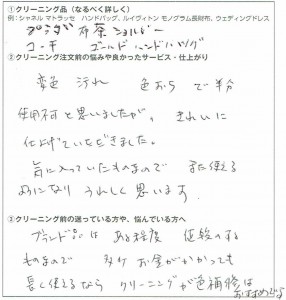 ①クリーニング品（なるべく詳しく）
例：シャネル マトラッセ　ハンドバッグ、ルイヴィトン モノグラム長財布、ウェディングドレス
プラダ 布茶 ショルダー
コーチ　ゴールド ハンドバッグ
②クリーニング注文前の悩みや良かったサービス・仕上がり
変色 汚れ　色おち で半分
使用不可と思いましたが、きれいに
仕上げていただきました。
気に入っていたものなので また使える
ようになり うれしく思います。
③クリーニング前の迷っている方や、悩んでいる方へ
ブランド品は ある程度 値段のする
ものなので 多少 お金がかかっても
長く使えるなら クリーニングが色補修は
おすすめです